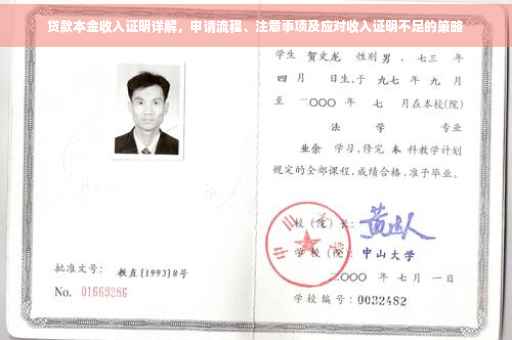 贷款本金收入证明详解，申请流程、注意事项及应对收入证明不足的策略
学生 贺文龙 性别 男 、七三 年
四 月 日生,于 九七 年 九 月
至 二〇〇〇 年 七 月在本校(院)
法 学 专业
业余 学习,修完 本 科教学计划
规定的全部课程,成绩合格,准予毕业。
校(院)长:
学校(院): 中山大学
二〇〇〇 年 七 月 一 日
学校编号: 0032482
批准文号: 教直(1993)8号
No. 01669286